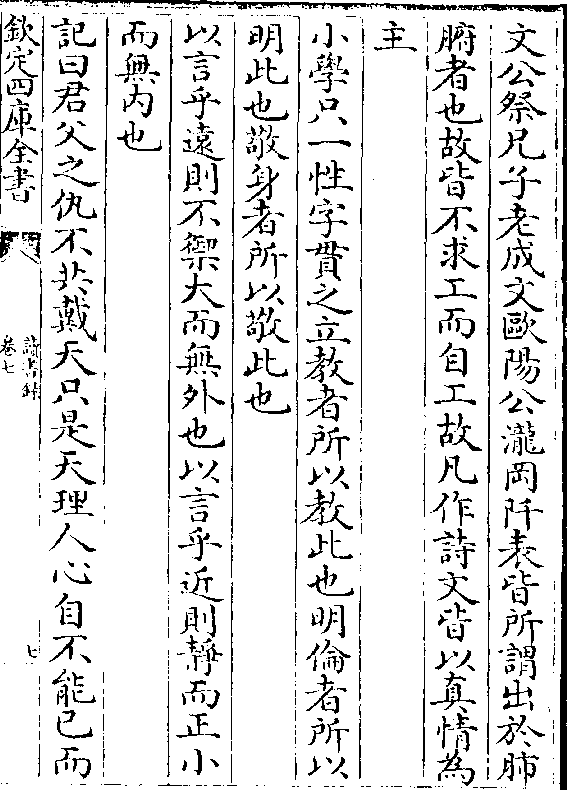 文公祭兄子老成文歐陽公瀧岡阡表皆所謂出於肺
腑者也故皆不求工而自工故凡作詩文皆以真情為
主
小學只一性字貫之立教者所以教此也明倫者所以
明此也敬身者所以敬此也
以言乎遠則不禦大而無外也以言乎近則靜而正小
而無内也
記曰君父之仇不共戴天只是天理人心自不能已而
欽定四庫全書
讀書録
卷七
七